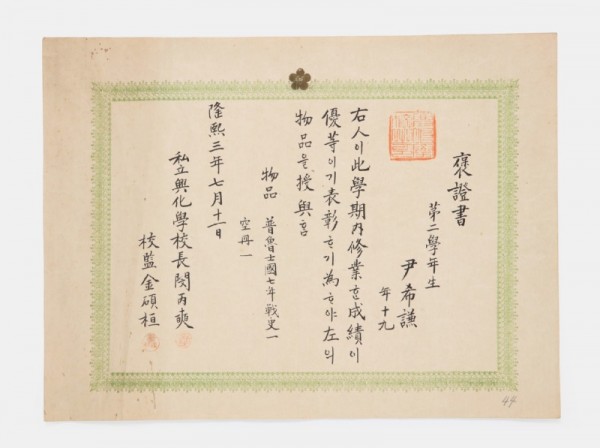 褒證書
第二學年生
尹希謙
年十九
右人이此學期內修業한成績이
優等이기表彰하기為하야左의
物品을授與홈
物品 普魯士國七年戰史一
空冊一
隆熙三年七月十二日
私立興化學校長閔丙奭
校監金碩桓
44